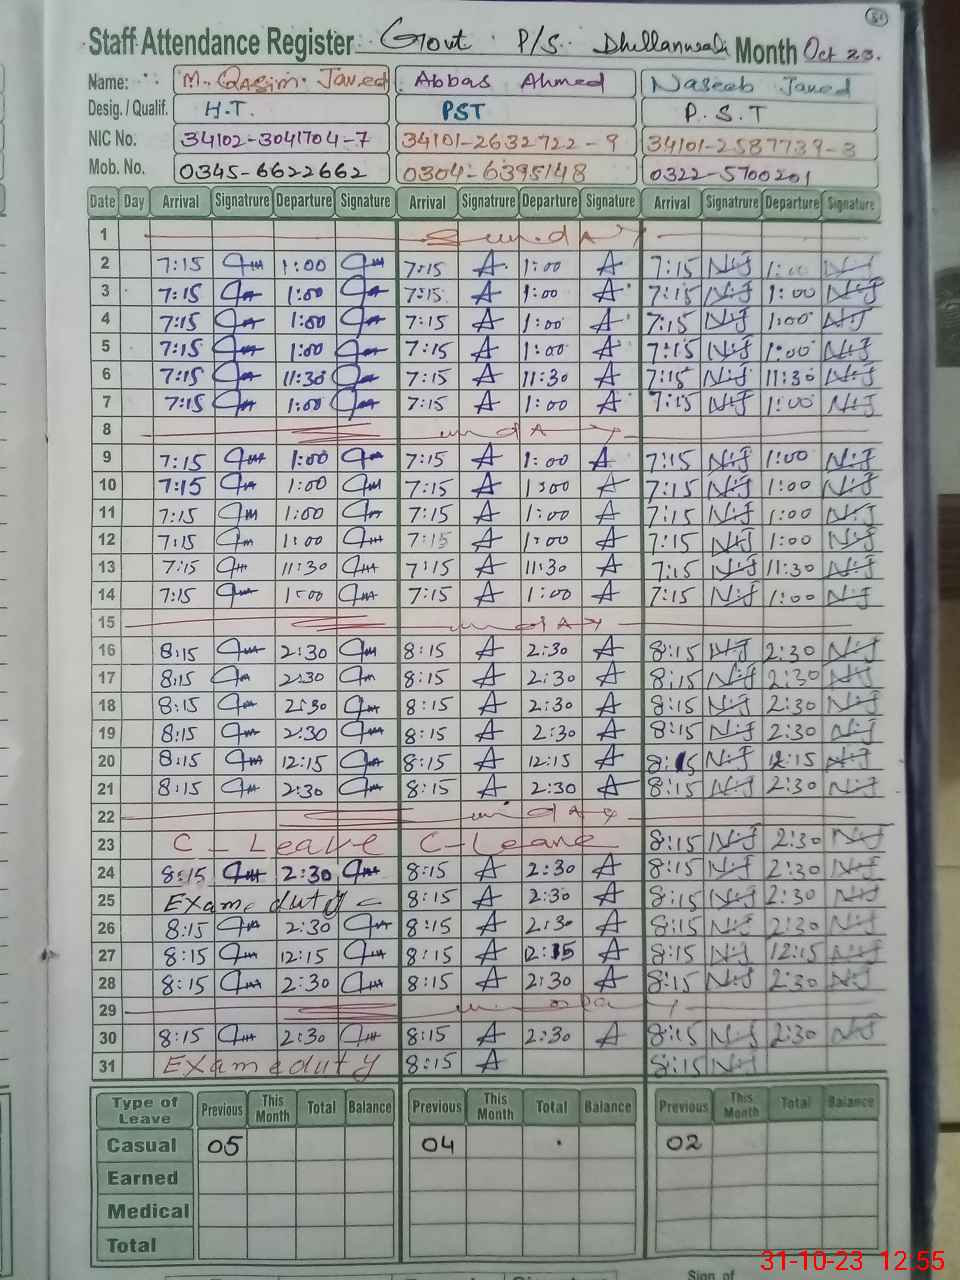 51
Staff Attendance Register Govt. P/S. Dhillanwali Month Oct 23.
Name: M. Qasim Javed Abbas Ahmed Naseeb Javed
Desig. / Qualif. H.T. PST P.S.T
NIC No. 34102-3041704-7 34101-2632722-9 34101-2587739-3
Mob. No. 0345-6622662 0304-6395148 0322-5700201
Date Day Arrival Signatrure Departure Signature Arrival Signatrure Departure Signature Arrival Signatrure Departure Signature
1 Sunday
2 7:15 1:00 7:15 A 1:00 A 7:15 N.J 1:00 N.J
3 7:15 1:00 7:15 A 1:00 A 7:15 N.J 1:00 N.J
4 7:15 1:00 7:15 A 1:00 A 7:15 N.J 1:00 N.J
5 7:15 1:00 7:15 A 1:00 A 7:15 N.J 1:00 N.J
6 7:15 11:30 7:15 A 11:30 A 7:15 N.J 11:30 N.J
7 7:15 1:00 7:15 A 1:00 A 7:15 N.J 1:00 N.J
8 Sunday
9 7:15 1:00 7:15 A 1:00 A 7:15 N.J 1:00 N.J
10 7:15 1:00 7:15 A 1:00 A 7:15 N.J 1:00 N.J
11 7:15 1:00 7:15 A 1:00 A 7:15 N.J 1:00 N.J
12 7:15 1:00 7:15 A 1:00 A 7:15 N.J 1:00 N.J
13 7:15 11:30 7:15 A 11:30 A 7:15 N.J 11:30 N.J
14 7:15 1:00 7:15 A 1:00 A 7:15 N.J 1:00 N.J
15 Sunday
16 8:15 2:30 8:15 A 2:30 A 8:15 N.J 2:30 N.J
17 8:15 2:30 8:15 A 2:30 A 8:15 N.J 2:30 N.J
18 8:15 2:30 8:15 A 2:30 A 8:15 N.J 2:30 N.J
19 8:15 2:30 8:15 A 2:30 A 8:15 N.J 2:30 N.J
20 8:15 12:15 8:15 A 12:15 A 8:15 N.J 12:15 N.J
21 8:15 2:30 8:15 A 2:30 A 8:15 N.J 2:30 N.J
22 Sunday
23 C - Leave C - Leave 8:15 N.J 2:30 N.J
24 8:15 2:30 8:15 A 2:30 A 8:15 N.J 2:30 N.J
25 Exame duty 8:15 A 2:30 A 8:15 N.J 2:30 N.J
26 8:15 2:30 8:15 A 2:30 A 8:15 N.J 2:30 N.J
27 8:15 12:15 8:15 A 12:15 A 8:15 N.J 12:15 N.J
28 8:15 2:30 8:15 A 2:30 A 8:15 N.J 2:30 N.J
29 Sunday
30 8:15 2:30 8:15 A 2:30 A 8:15 N.J 2:30 N.J
31 Exame duty 8:15 A 8:15 N.J
Type of Leave Previous This Month Total Balance Previous This Month Total Balance Previous This Month Total Balance
Casual 05 04 02
Earned
Medical
Total
Sign. of
31-10-23 12:55